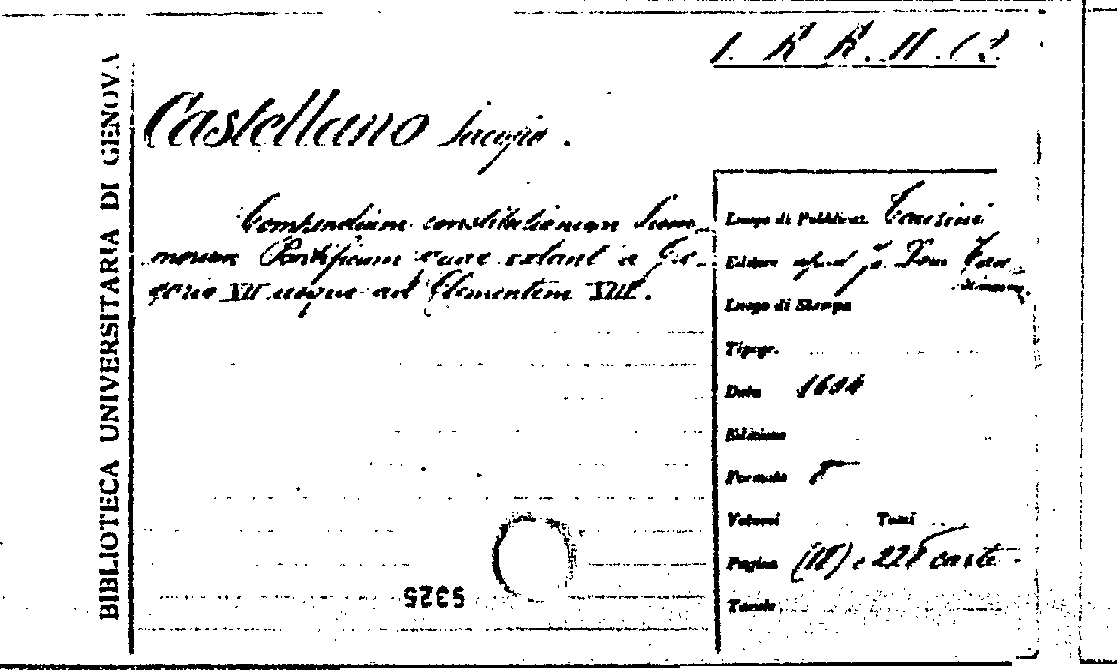 1. R R. II. 12.
BIBLIOTECA UNIVERSITARIA DI GENOVA
Castellano Iacopo.
Compendium constitutionum Sum-
morum Pontificum quae extant a Gre-
gorio VII usque ad Clementem VIII.
Luogo di Pubblicaz. Taurini
Editore apud Jo. Dom. Tar-
Luogo di Stampa
Tipogr.
Data 1604
Edizione
Formato 8°
Volumi Tomi
Pagine (III) e 228 carte.
Tavole
5325